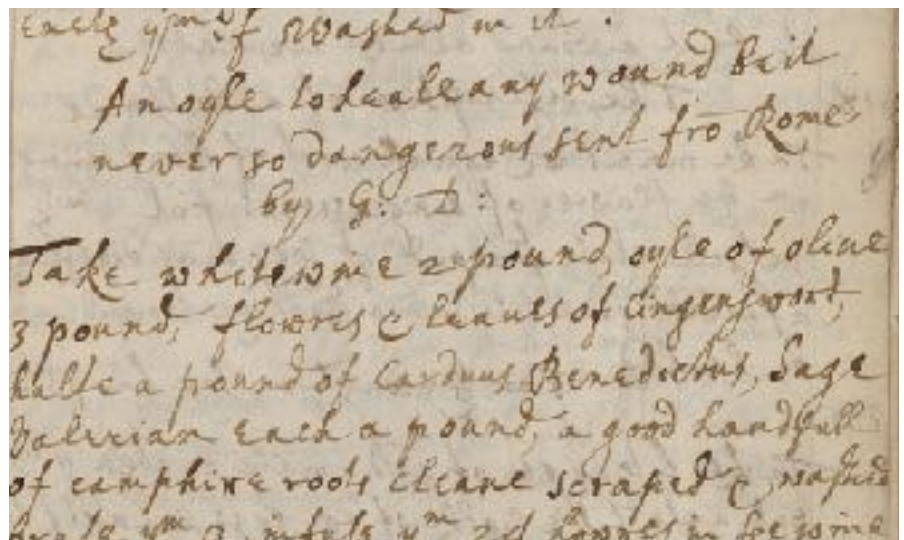 washed in it.
An oyle to heale any wound be it
never so dangerous sent frō Rome
by G: D:
Take whitewine 2 pound, oyle of olive
3 pound, flowres & leaves of
halfe a pound of Carduus Benedictus, Sage
Valerian each a pound, a good handfull
of camphire roots cleane scraped & washed
ym &